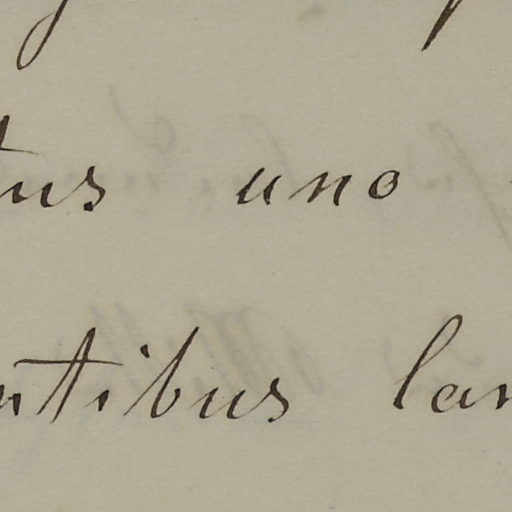 tus uno
ntibus lan